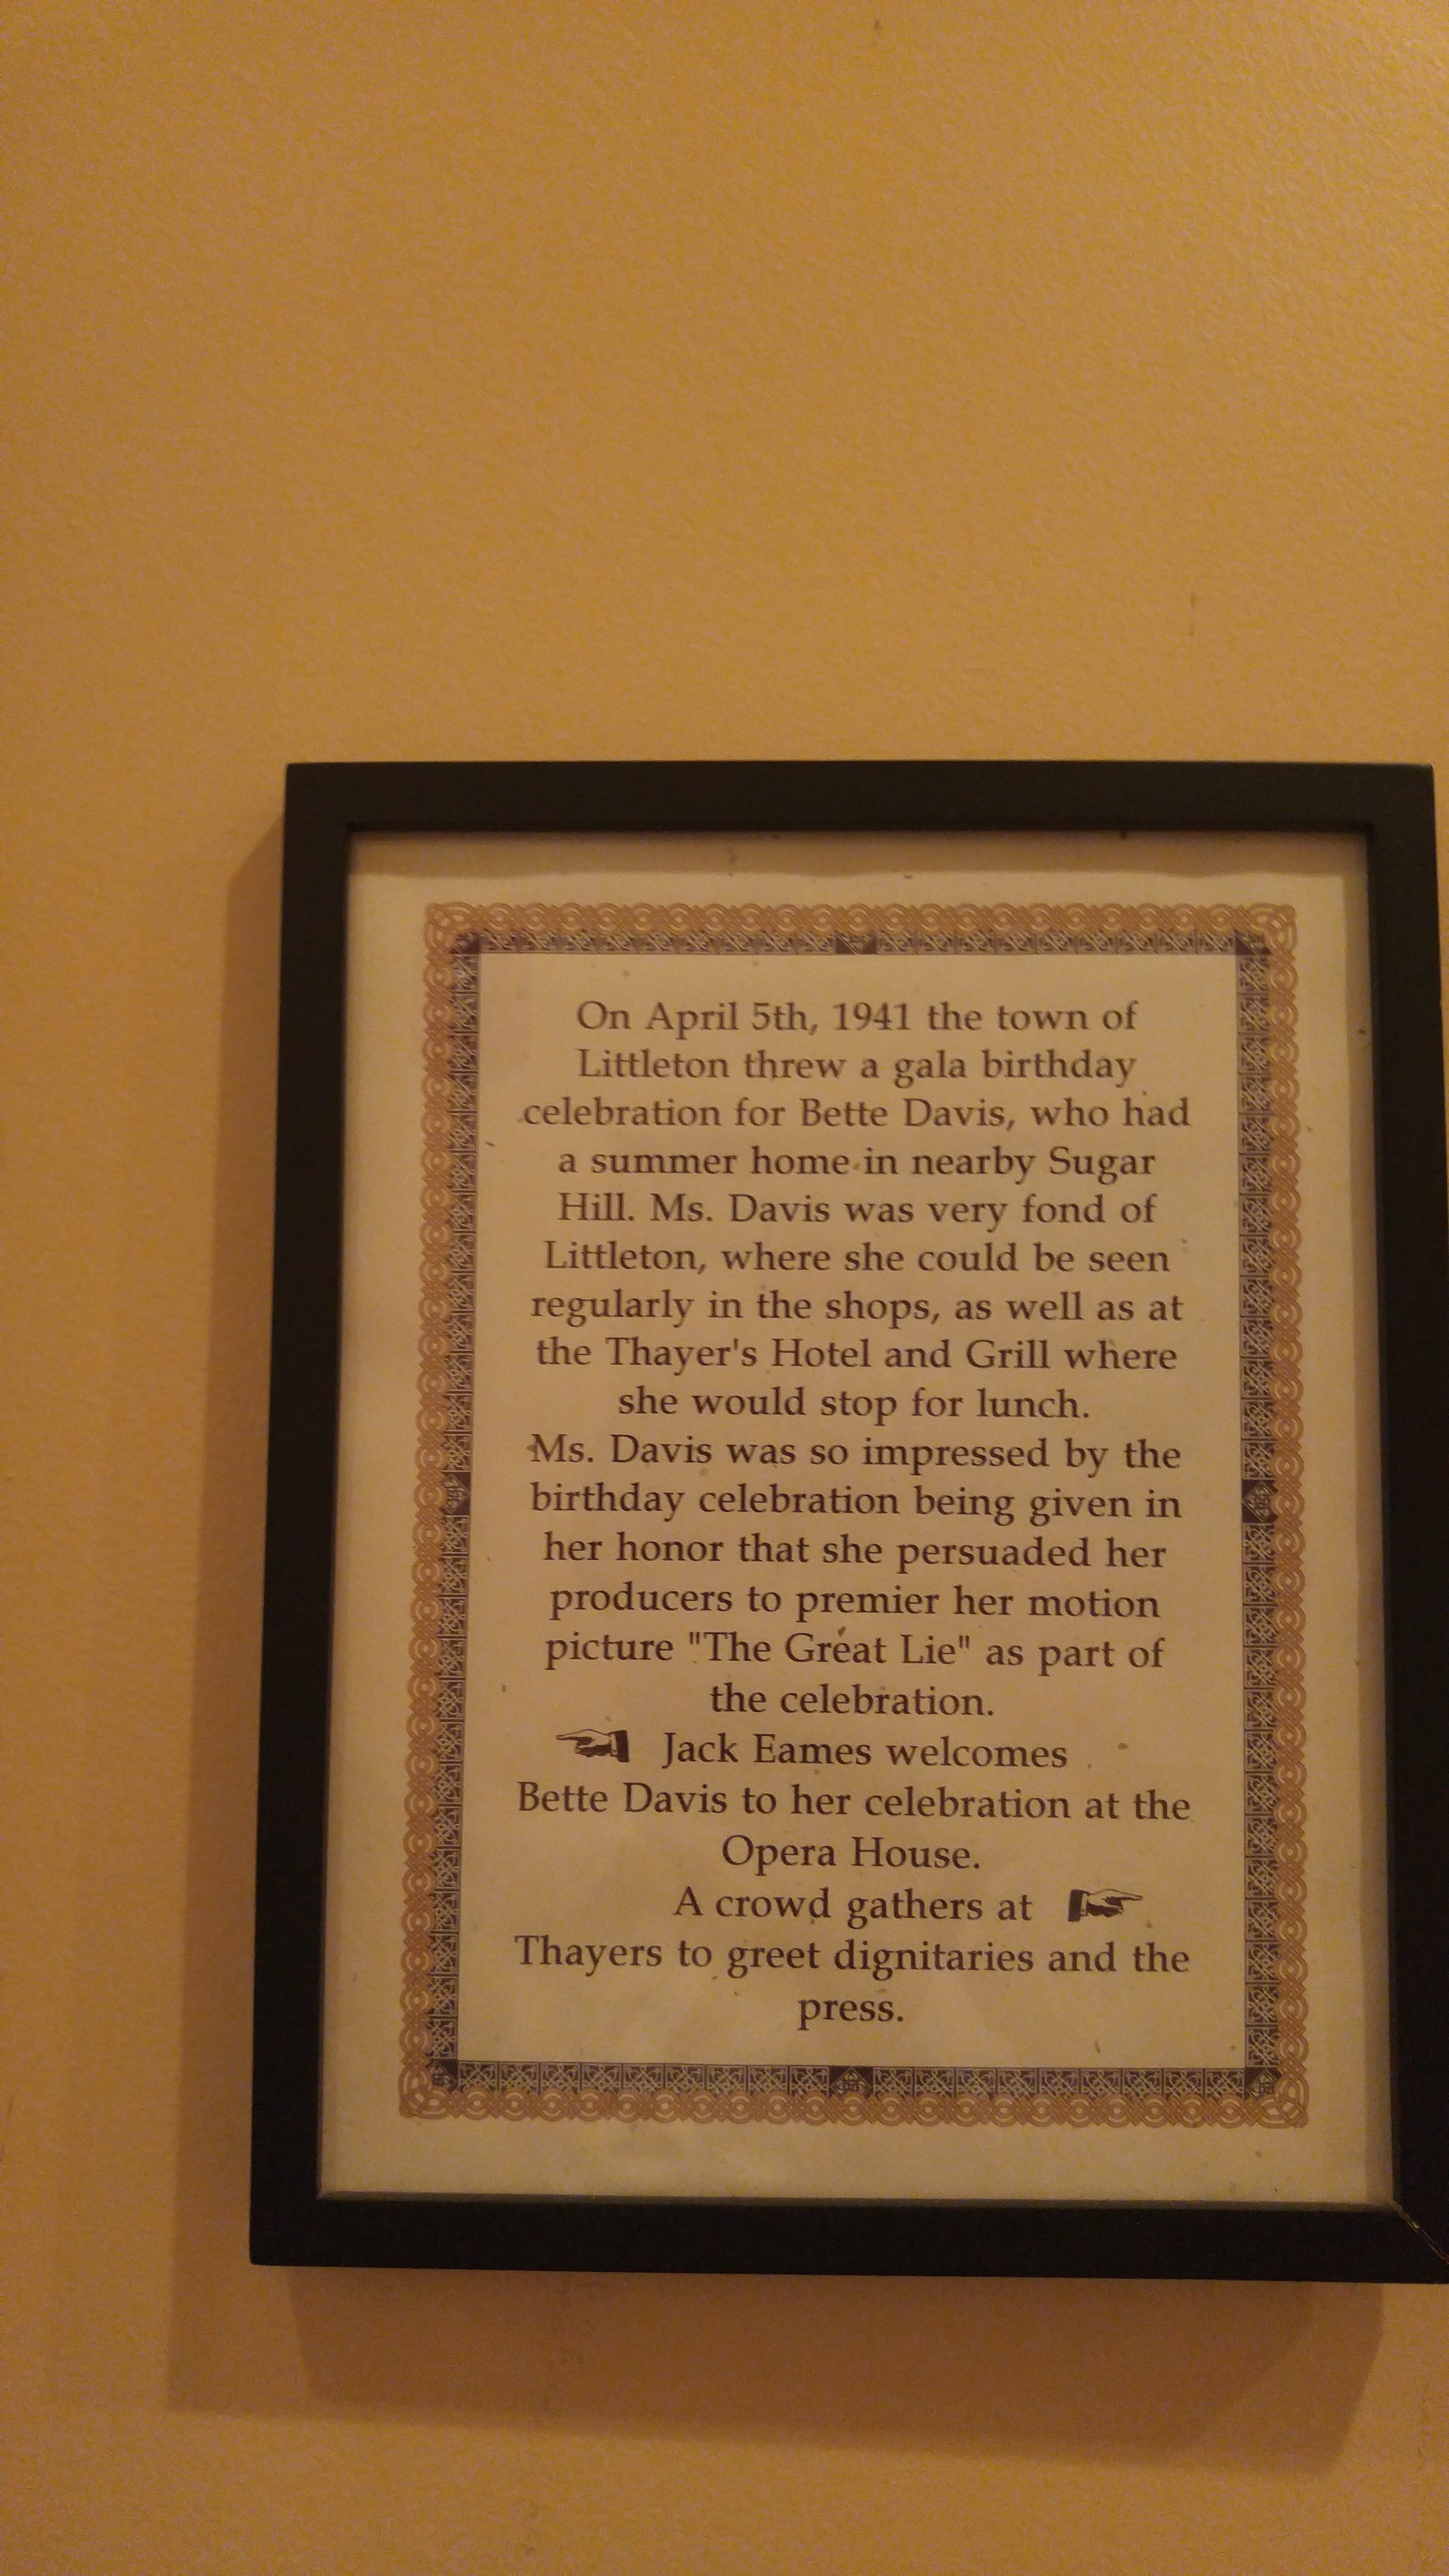 On April 5th, 1941 the town of
Littleton threw a gala birthday
celebration for Bette Davis, who had
a summer home in nearby Sugar
Hill. Ms. Davis was very fond of
Littleton, where she could be seen
regularly in the shops, as well as at
the Thayer's Hotel and Grill where
she would stop for lunch.
Ms. Davis was so impressed by the
birthday celebration being given in
her honor that she persuaded her
producers to premier her motion
picture "The Great Lie" as part of
the celebration.
Jack Eames welcomes
Bette Davis to her celebration at the
Opera House.
A crowd gathers at
Thayers to greet dignitaries and the
press.